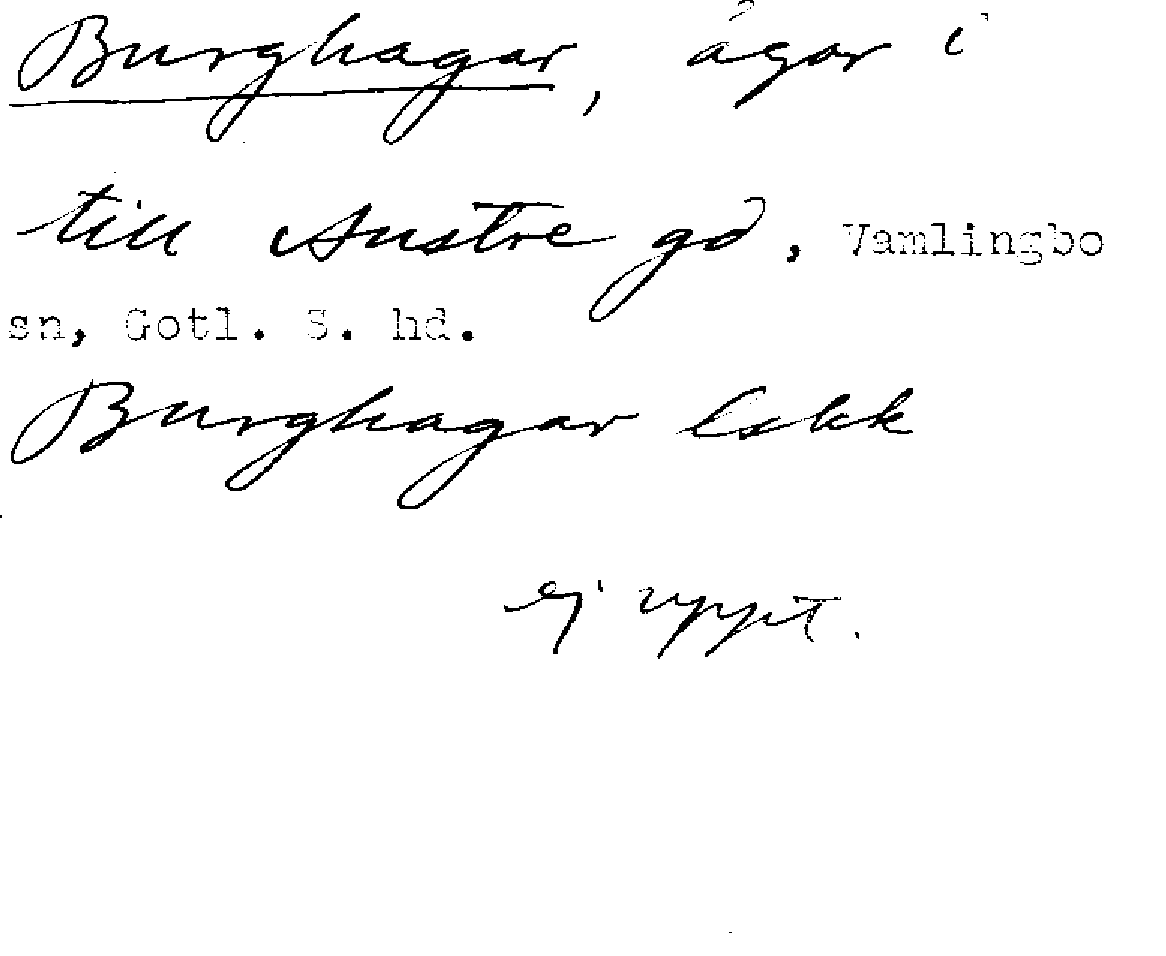 Burghagar, ägor i
till Austre gd, Vamlingbo
sn, Gotl. S. hd.
Burghagar Eskk
ej uppt.